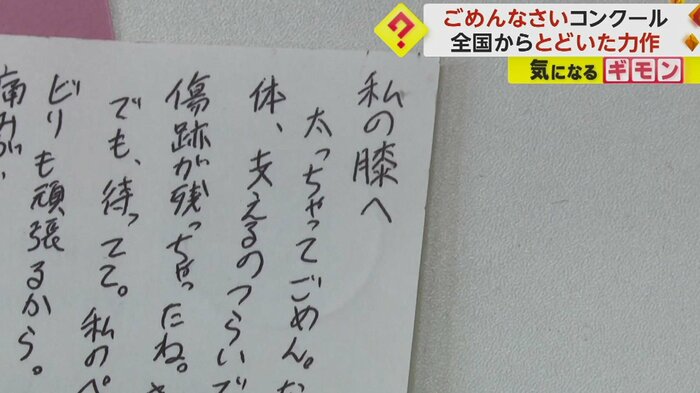 ごめんなさいコンクール
全国からとどいた力作
気になるギモン
私の膝へ
太っちゃってごめん。
体、支えるのつらいで
傷跡が残っちゃったね。
でも、待ってて。私のペ
どりも頑張るから。
痛みが